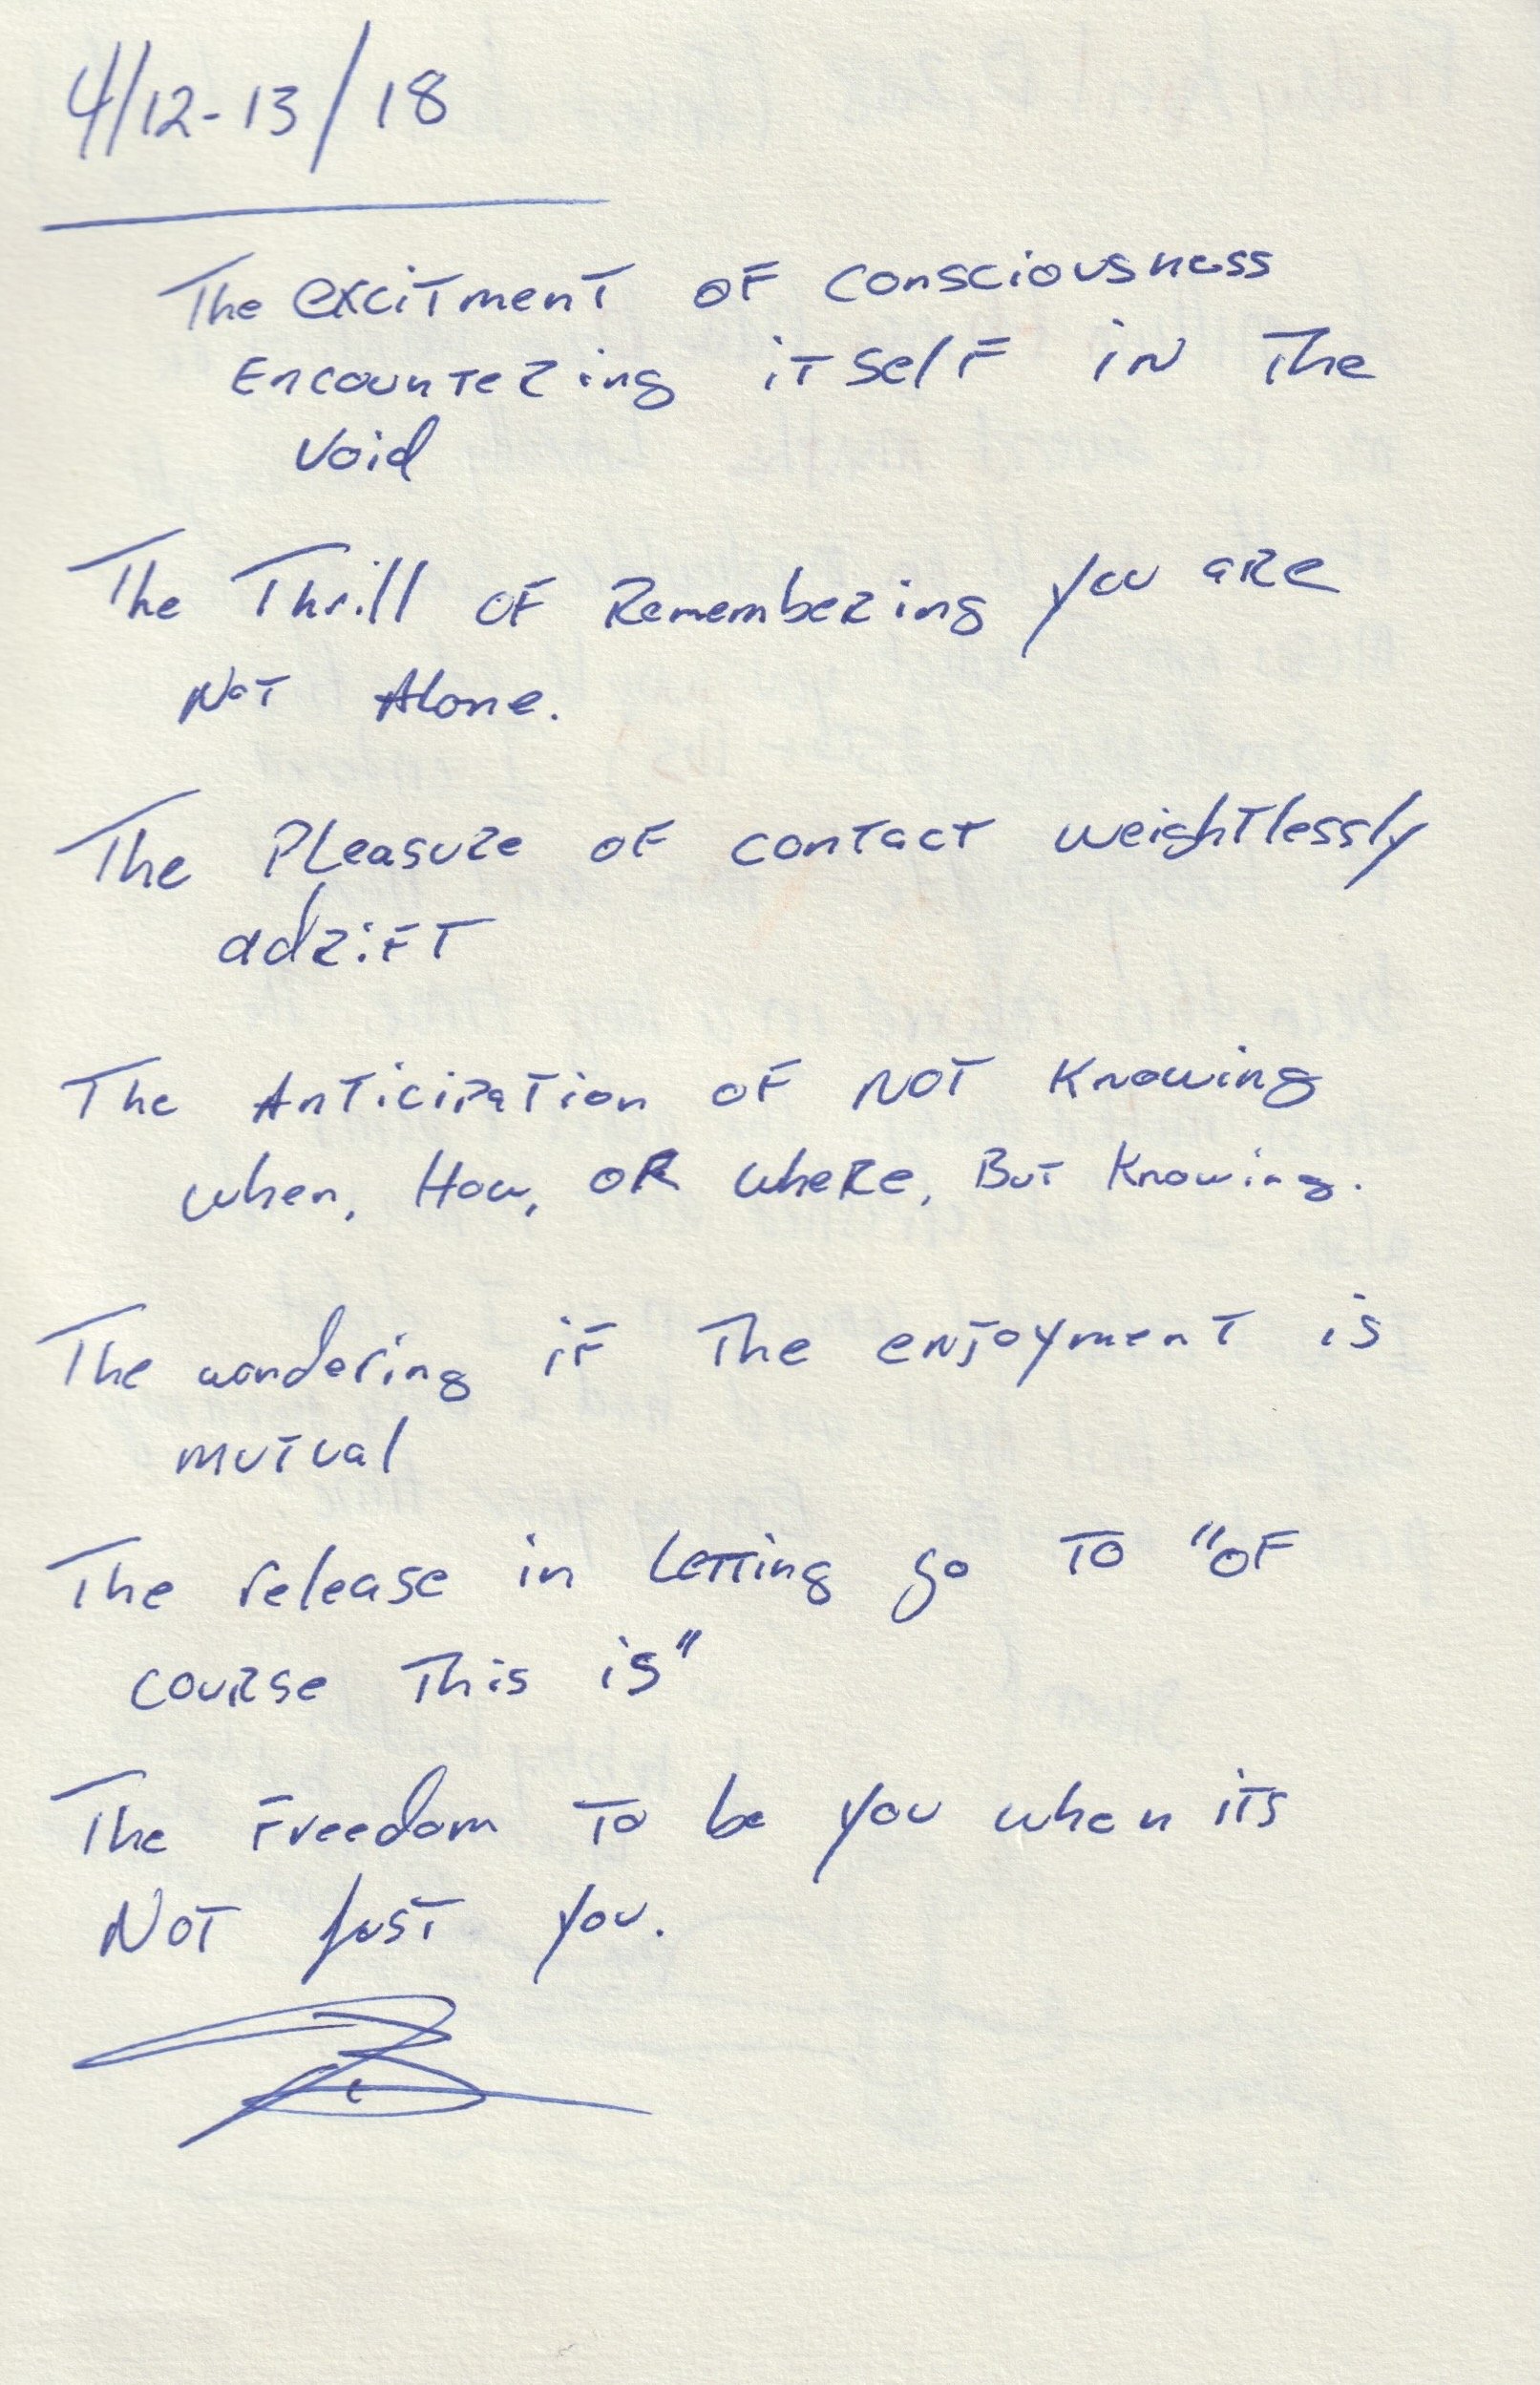 4/12-13/18
The excitment of consciousness
Encountering itself in the
Void
The Thrill of Remembering you are
Not Alone.
The Pleasure of contact weightlessly
adrift
The Anticipation of NOT Knowing
when, How, OR wheRe, But Knowing.
The wondering if The enjoyment is
mutual
The release in Letting go To "of
couRse This is"
The Freedom To be you when its
NOT just you.